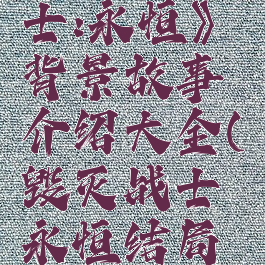 士:永恒》
背景故事
介绍大全(
毁灭战士
永恒结局